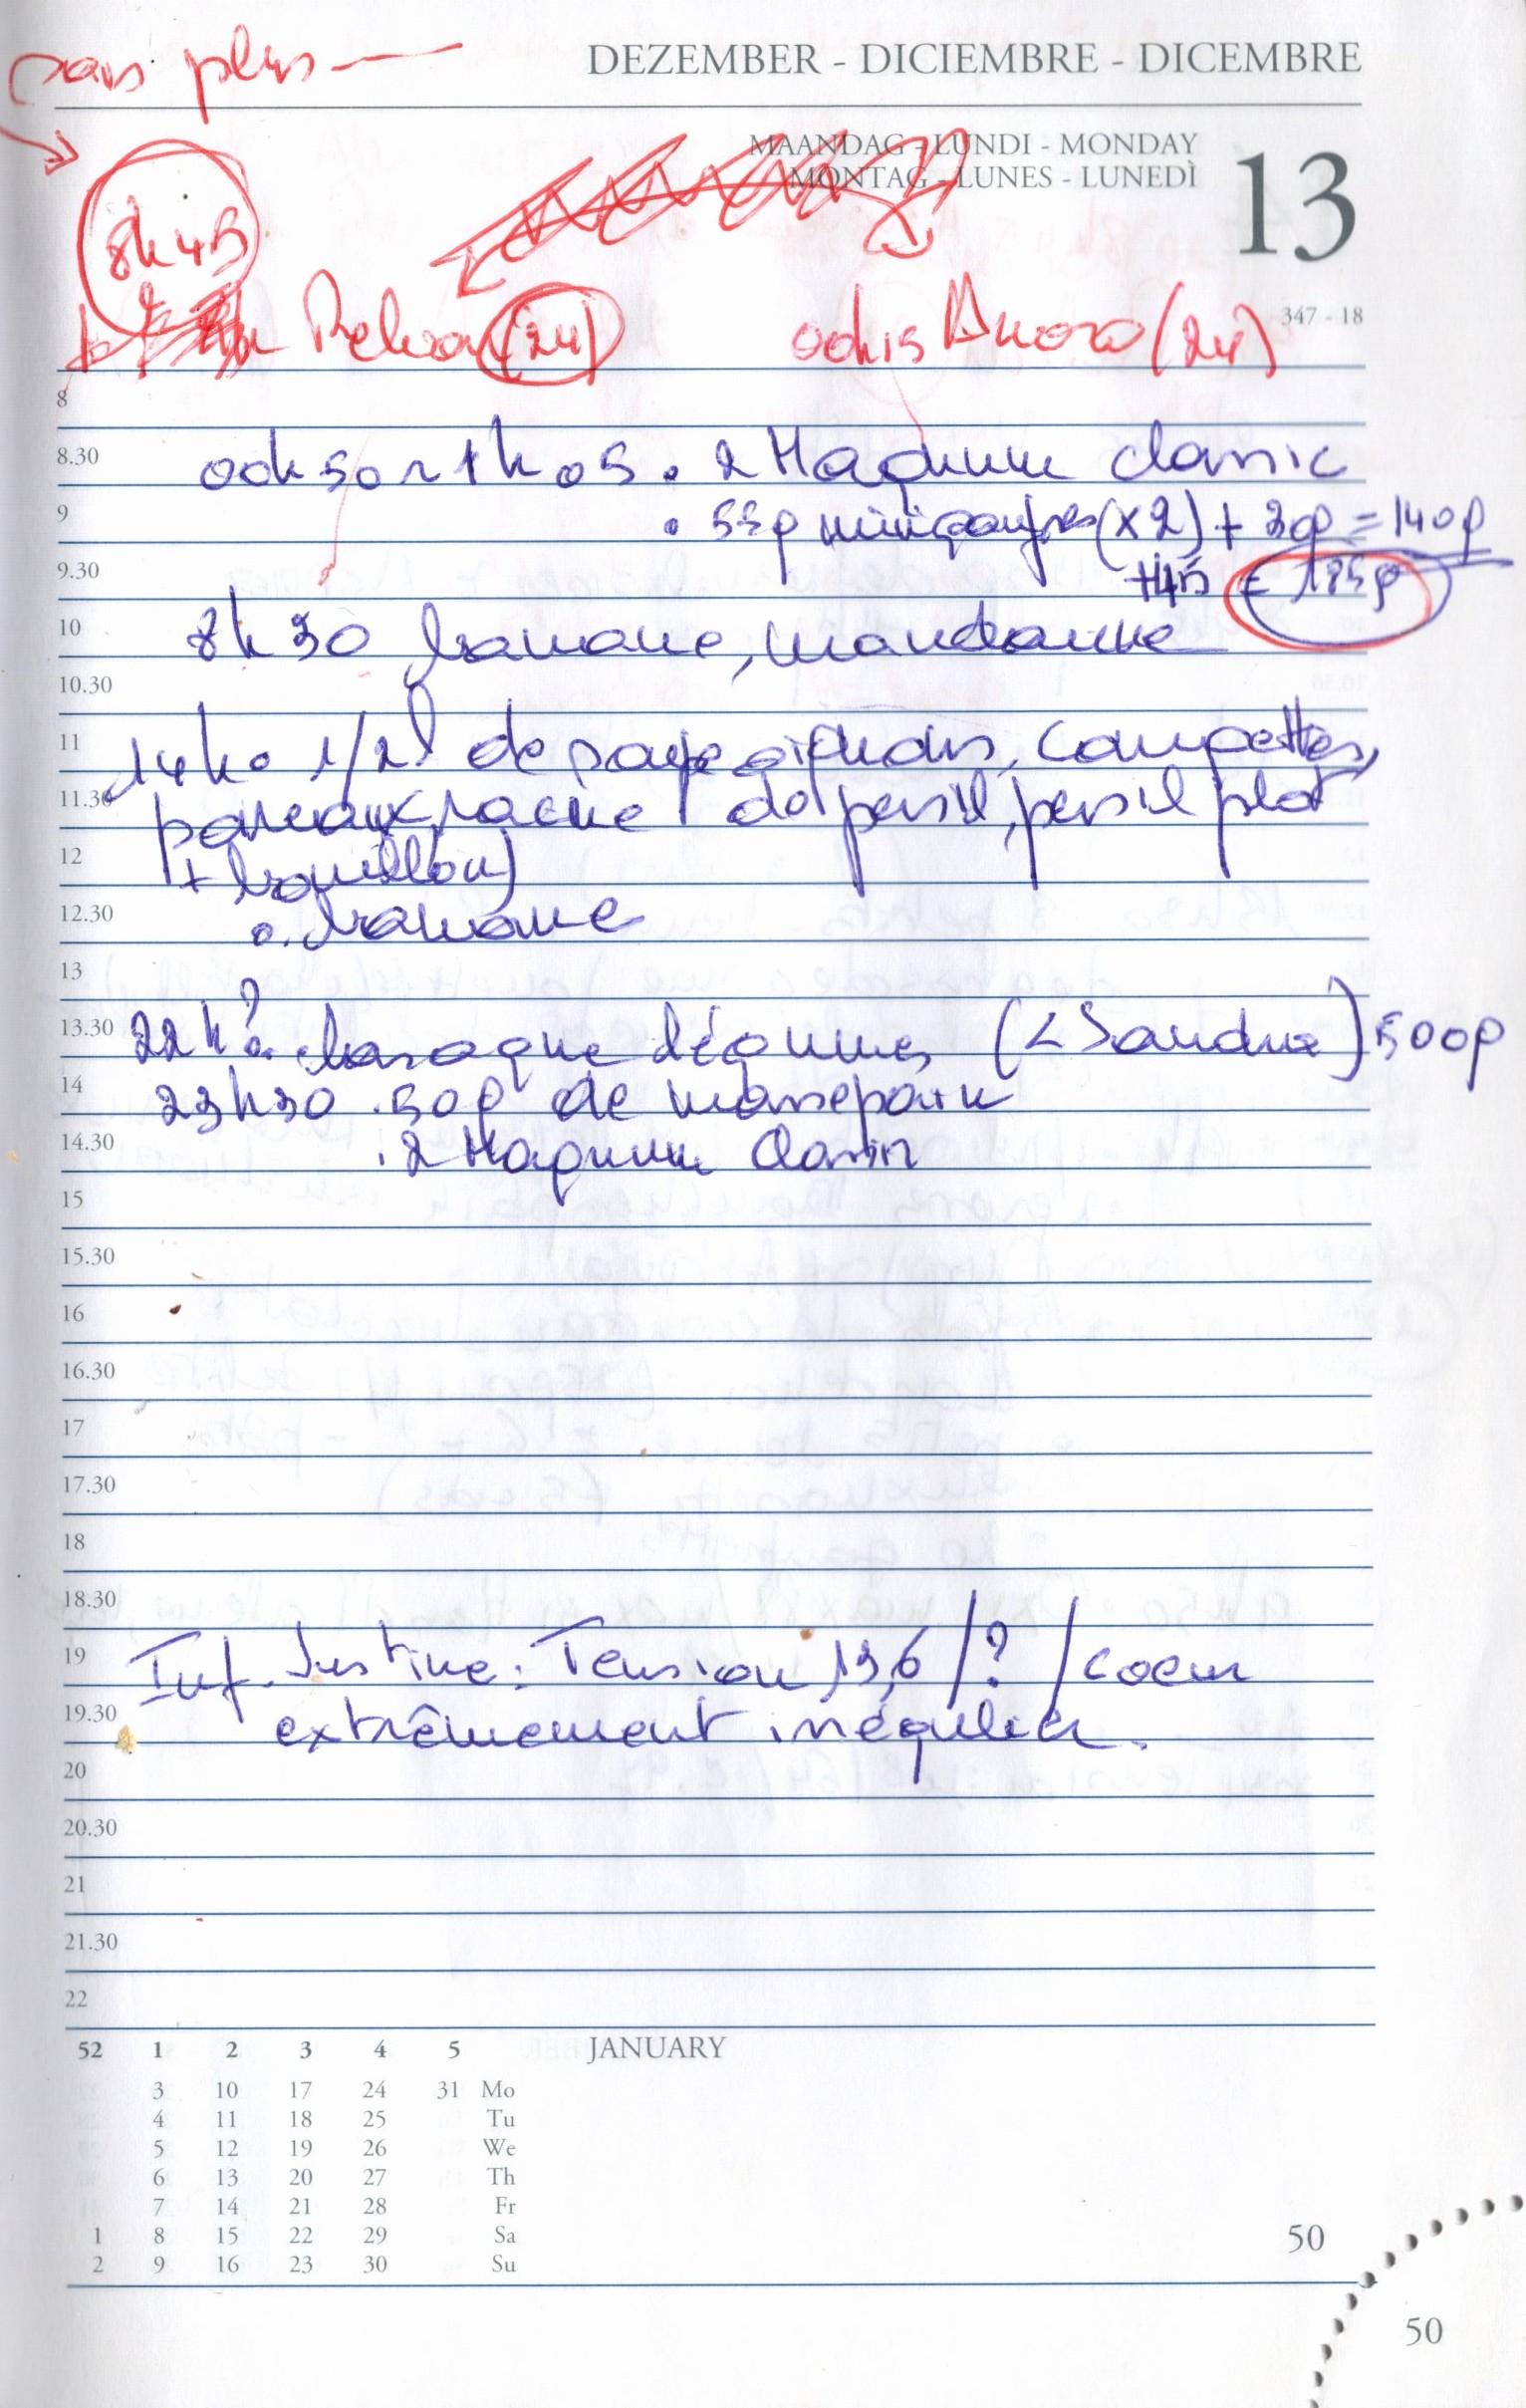 sans plus
DEZEMBER - DICIEMBRE - DICEMBRE
MAANDAG - LUNDI - MONDAY
MONTAG - LUNES - LUNEDÌ
13
347 - 18
8h45
(24) (24)
8
8.30 00h50 1h05 . 2 Magnum classic
9 . 55g (x2) + 30g = 140g
9.30 +45 = 185g
10 8h30 banane, mandarine
10.30
11 14h 1/2 l de oignons,
11.30 racine de persil, persil plat
12 + bouillon)
12.30 . banane
13
13.30 22h? légumes (< Sandra) 500g
14 23h30 . 50g de massepain
14.30 . 2 Magnum Classic
15
15.30
16
16.30
17
17.30
18
18.30
19 Inf. Justine : Tension 13,6 / ? / coeur
19.30 extrêmement irrégulier.
20
20.30
21
21.30
22
52 1 2 3 4 5 JANUARY
3 10 17 24 31 Mo
4 11 18 25 Tu
5 12 19 26 We
6 13 20 27 Th
7 14 21 28 Fr
1 8 15 22 29 Sa
2 9 16 23 30 Su
50
50